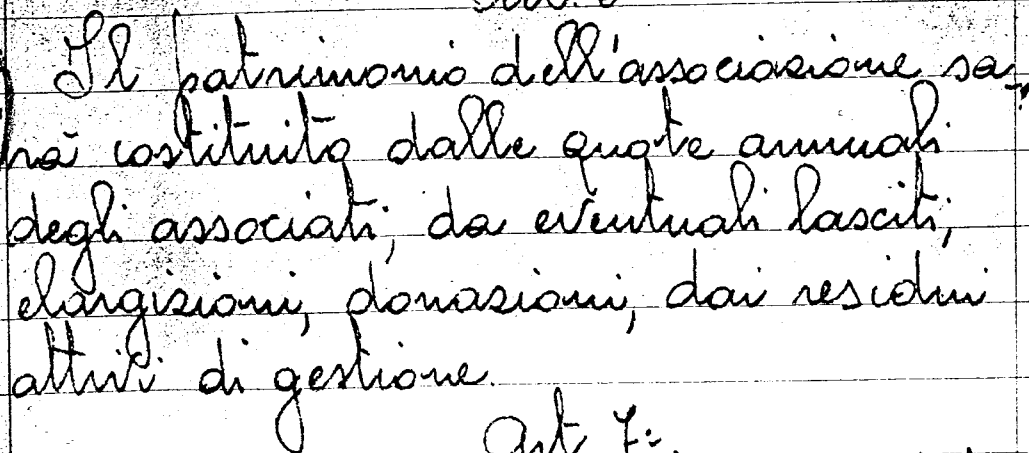 Il patrimonio dell'associazione sa-
rà costituito dalle quote annuali
degli associati, da eventuali lasciti,
elargizioni, donazioni, dai residui
attivi di gestione.
Art 7: